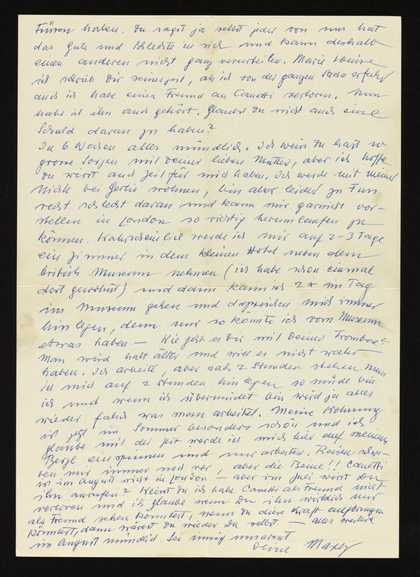 Füssen haben. Du sagst ja selbst jeder von uns hat
das Gute und Schlechte in sich und kann deshalb
einen anderen nicht ganz verurteilen. Marie Louise
ich schrieb Dir seinerzeit, als ich von der ganzen erfuhr
auch ich habe einen Freund an Canetti verloren. Nun
habe ich ihn auch gehört. Glaubst Du nicht auch eine
Schuld daran zu haben?
In 6 Wochen alles mündlich. Ich weiss Du hast so
grosse Sorgen mit Deiner lieben Mutter, aber ich hoffe
Du wirst auch Zeit für mich haben. Ich werde mit meiner
Nichte bei Gertie wohnen, bin aber leider zu Fuss
recht schlecht daran und kann mir garnicht vor-
stellen in London so richtig herumlaufen zu
können. Wahrscheinlich werde ich mir auf 2-3 Tage
ein Zimmer in dem kleinen Hotel neben dem
british Museum nehmen (ich habe schon einmal
dort gewohnt) und dann kann ich 2x im Tag
ins Museum gehen und dazwischen mich immer
hinlegen, denn nur so könnte ich vom Museum
etwas haben — Wie geht es Dir mit Deiner Trombose?
Man wird halt älter und will es nicht wahr-
haben. Ich arbeite, aber nach 2 Stunden stehen muss
ich mich auf 2 Stunden hinlegen so müde bin
ich und wenn ich übermüdet bin wird ja alles
wieder falsch was man arbeitet. Meine Wohnung
ist jetzt im Sommer besonders schön und ich
glaube mit der Zeit werde ich mich hier auf meinem
Bergl einspinnen und nur arbeiten. Reisen
ich mir immer noch vor, aber die Beine!! Canetti
ist im August nicht in London — aber im Juli wirst Du
ihn anrufen? Könnt Du ich habe Canetti als Freund nicht
verloren und ich glaube wenn Du ihn wirklich nur
als Freund sehen könntest, wenn Du diese Kraft aufbringen
könntest, dann wärest Du wieder Du selbst — alles weitere
im August mündlich. Sei innig umarmt
Deine Maxey